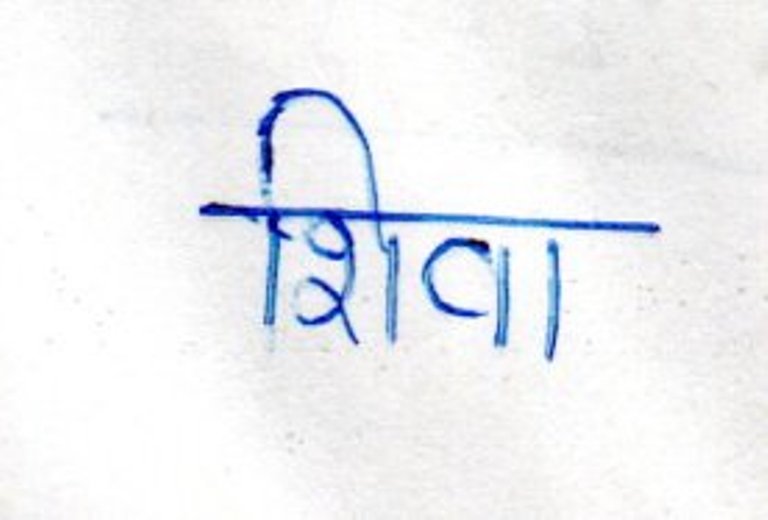 शिवा